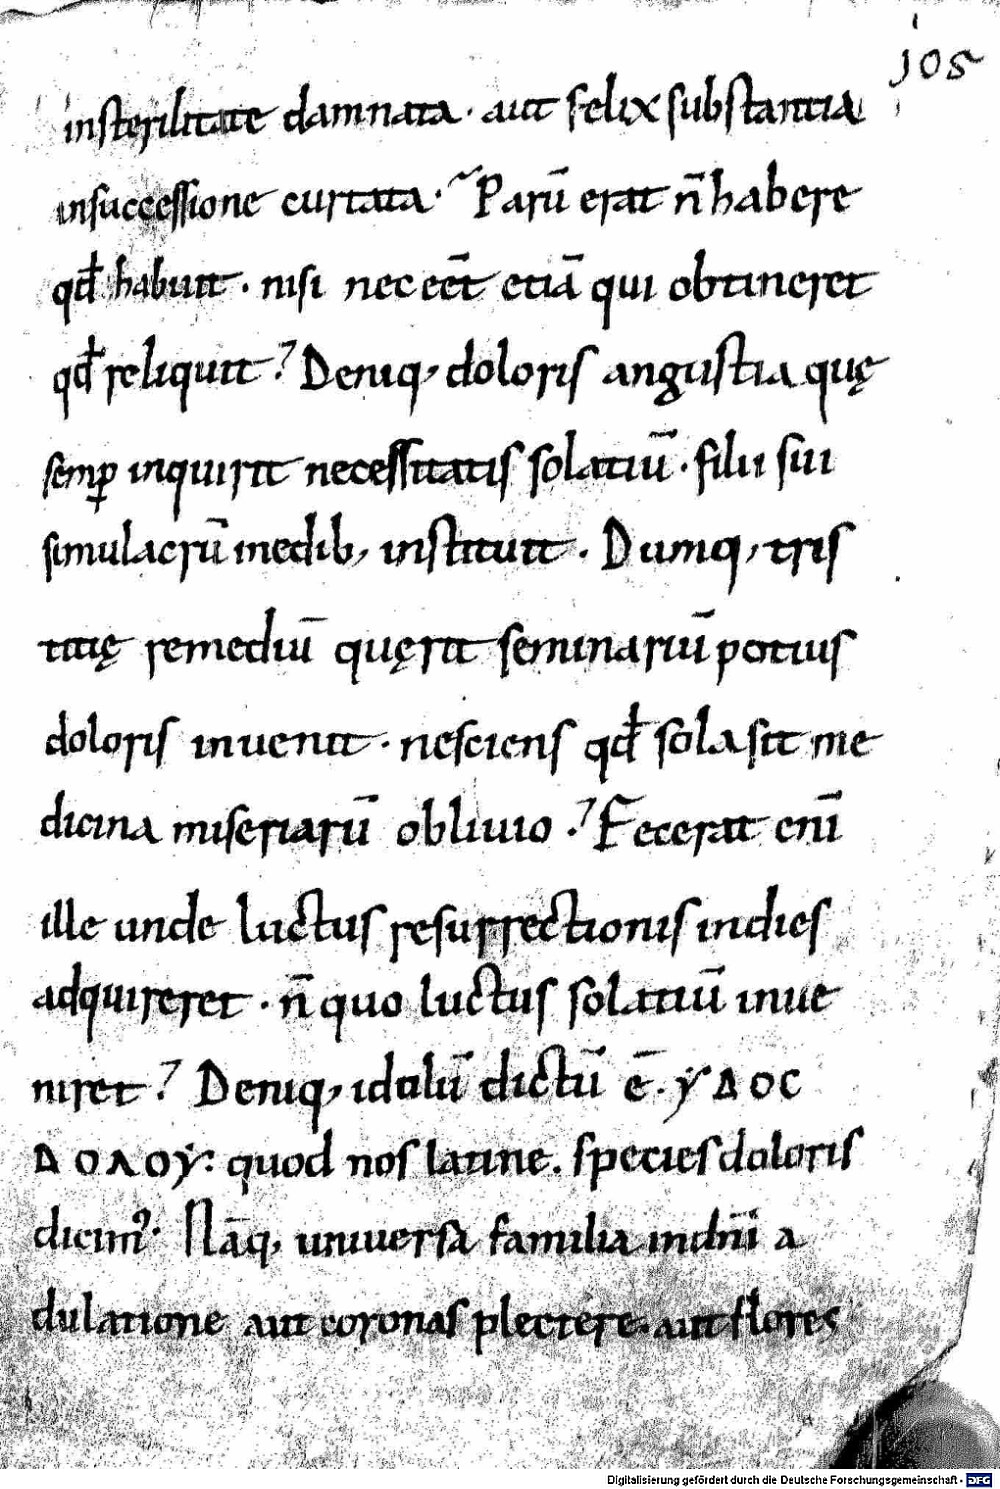 jos
insterilitate damnata · aut felix substantia
insuccessione curtata · Parū erat n̄ habere
qđ habuit · nisi nec eēt etiā qui obtineret
qđ reliquit? Deniq, doloris angustia quę
semꝑ inquirit necessitatis solatiū · filii sui
simulacrū inedib, instituit · Dumq, tris
titię remediū quęrit seminariū potius
doloris inuenit · nesciens qđ sola sit me
dicina miseriarū obliuio? Fecerat enī
ille unde luctus resurrectionis indies
adquireret · n̄ quo luctus solatiū inue
niret? Deniq, idolū dictū ē · yΔoc
Δολoy: quod nos latine. species doloris
dicimꝰ · Nāq, uniuersa familia indn̄i a
dulatione aut coronas plectere. aut flores
Digitalisierung gefördert durch die Deutsche Forschungsgemeinschaft - DFG